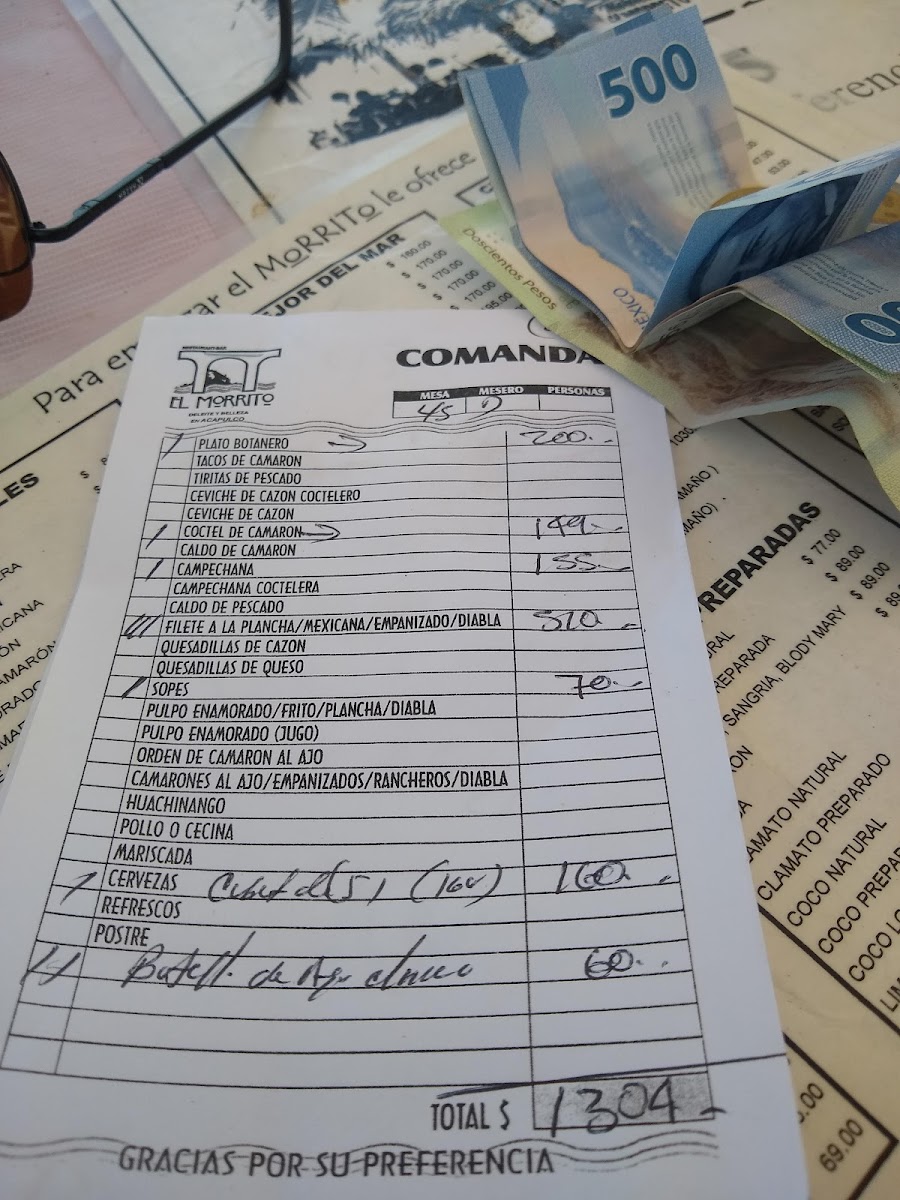 500
Doscientos Pesos
MEXICO
Para empezar el MORRITO le ofrece
JOR DEL MAR
$ 160.00
$ 170.00
$ 170.00
$ 170.00
COMANDA
EL MORRITO
DELEITE Y BELLEZA
EN ACAPULCO
MESA MESERO PERSONAS
45
PLATO BOTANERO 200.-
TACOS DE CAMARON
TIRITAS DE PESCADO
CEVICHE DE CAZON COCTELERO
CEVICHE DE CAZON
COCTEL DE CAMARON 149.-
CALDO DE CAMARON
CAMPECHANA 155.-
CAMPECHANA COCTELERA
CALDO DE PESCADO
FILETE A LA PLANCHA/MEXICANA/EMPANIZADO/DIABLA 510.-
QUESADILLAS DE CAZON
QUESADILLAS DE QUESO
SOPES 70.-
PULPO ENAMORADO/FRITO/PLANCHA/DIABLA
PULPO ENAMORADO (JUGO)
ORDEN DE CAMARON AL AJO
CAMARONES AL AJO/EMPANIZADOS/RANCHEROS/DIABLA
HUACHINANGO
POLLO O CECINA
MARISCADA
CERVEZAS (5) (160) 160.-
REFRESCOS
POSTRE
de 60.-
TOTAL $ 1304.-
GRACIAS POR SU PREFERENCIA
REPARADAS
$ 77.00
$ 89.00
$ 89.00
REPARADA
SANGRIA, BLODY MARY
CLAMATO NATURAL
CLAMATO PREPARADO
COCO NATURAL
COCO PREPAR
69.00